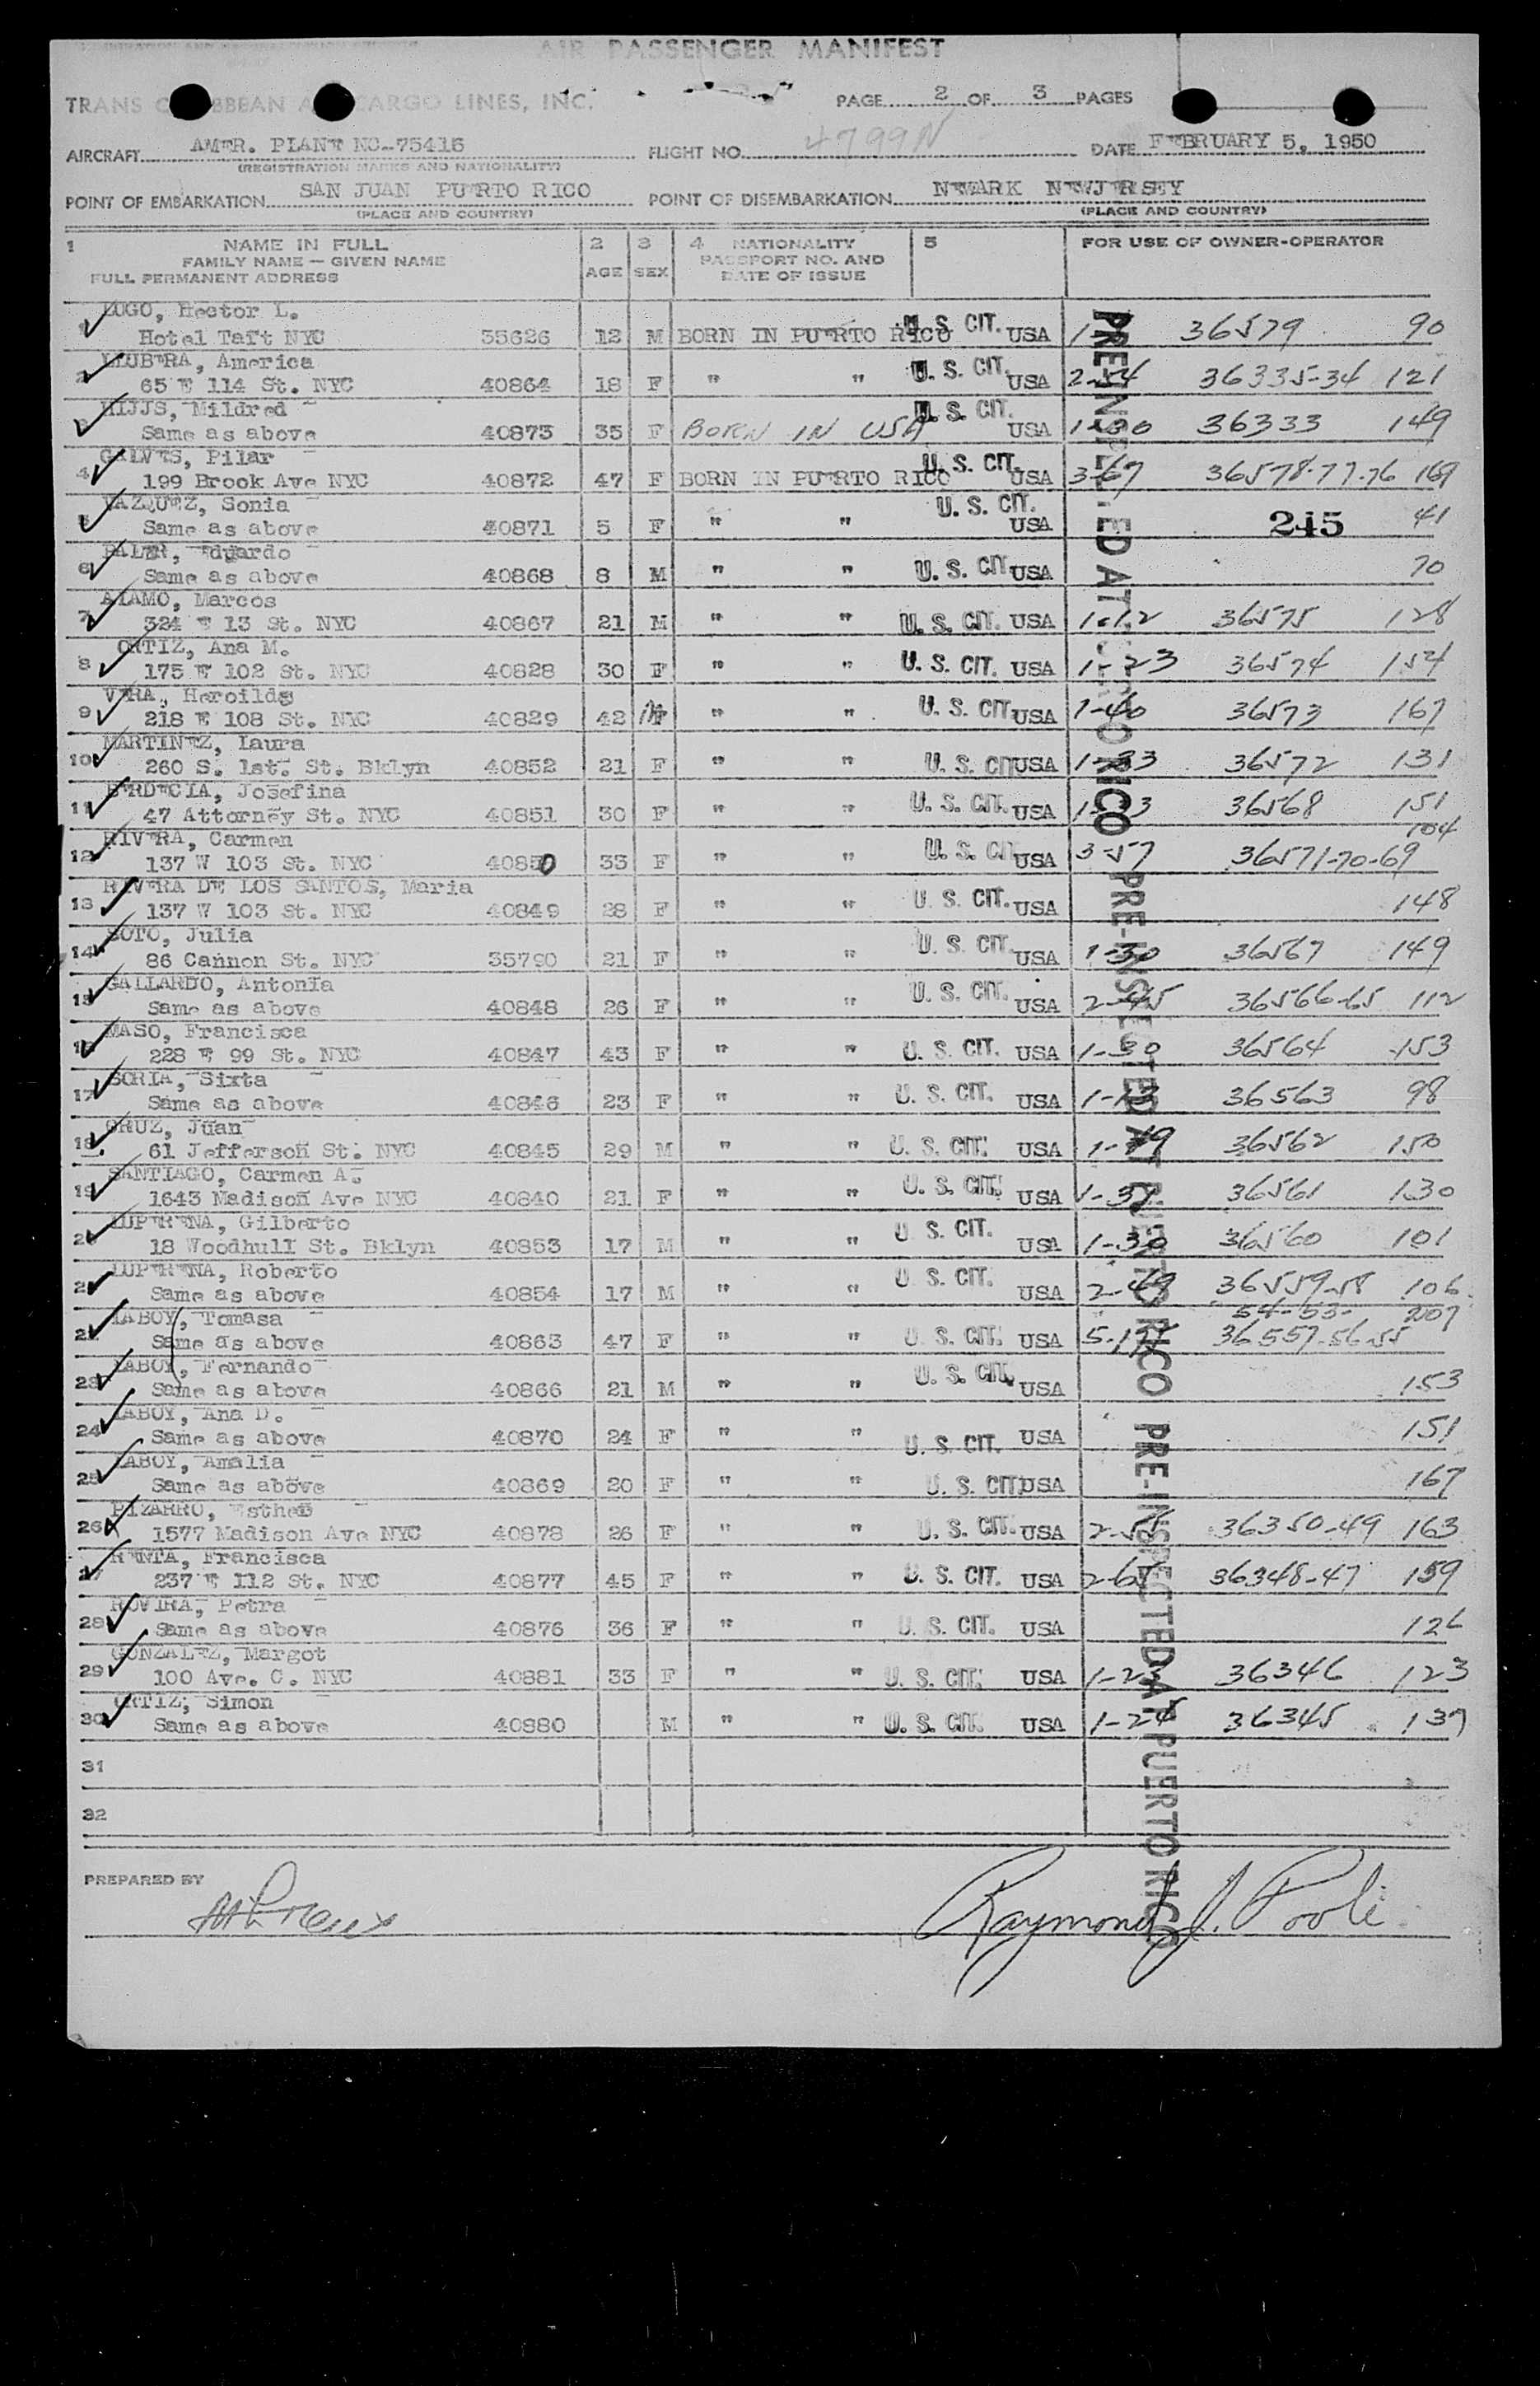 AIR PASSENGER MANIFEST
TRANS C BBEAN A CARGO LINES, INC.
PAGE 2 OF 3 PAGES
AIRCRAFT AMER. PLANE NC-75415 FLIGHT NO. 4799N DATE FEBRUARY 5, 1950
(REGISTRATION MARKS AND NATIONALITY)
POINT OF EMBARKATION SAN JUAN PUERTO RICO POINT OF DISEMBARKATION NEWARK NEWJERSEY
(PLACE AND COUNTRY) (PLACE AND COUNTRY)
1 NAME IN FULL 2 3 4 NATIONALITY 5 FOR USE OF OWNER-OPERATOR
FAMILY NAME — GIVEN NAME PASSPORT NO. AND
FULL PERMANENT ADDRESS AGE SEX DATE OF ISSUE
LUGO, Hector L.
Hotel Taft NYC 35626 12 M BORN IN PUERTO RICO U. S. CIT. USA 36579 90
2 LLUBERA, America
65 E 114 St. NYC 40864 18 F " " U. S. CIT. USA 36335-34 121
3 HIJJS, Mildred
Same as above 40873 35 F BORN IN USA U. S. CIT. USA 36333 149
4 GALVES, Pilar
199 Brook Ave NYC 40872 47 F BORN IN PUERTO RICO U. S. CIT. USA 3-67 36578-77-76 169
VAZQUEZ, Sonia
Same as above 40871 5 F " " U. S. CIT. USA 245 41
6 Eduardo
Same as above 40868 8 M " " U. S. CIT USA 70
7 ALAMO, Marcos
324 E 13 St. NYC 40867 21 M " " U. S. CIT. USA 1-12 36575 128
8 ORTIZ, Ana M.
175 E 102 St. NYC 40828 30 F " " U. S. CIT. USA 1-23 36574 154
9 VERA, Heroilds
218 E 108 St. NYC 40829 42 M " " U. S. CIT. USA 1-40 36573 167
10 MARTINEZ, Laura
260 S. 1st. St. Bklyn 40852 21 F " " U. S. CIT USA 36572 131
11 BERDECIA, Josefina
47 Attorney St. NYC 40851 30 F " " U. S. CIT. USA 36568 151
12 RIVERA, Carmen 104
137 W 103 St. NYC 40850 33 F " " U. S. CIT USA 3-57 36571-70-69
13 RIVERA DE LOS SANTOS, Maria
137 W 103 St. NYC 40849 28 F " " U. S. CIT. USA 148
14 SOTO, Julia
86 Cannon St. NYC 35790 21 F " " U. S. CIT. USA 1-30 36567 149
15 GALLARDO, Antonia
Same as above 40848 26 F " " U. S. CIT. USA 2-45 36566-65 112
16 MASO, Francisca
228 E 99 St. NYC 40847 43 F " " U. S. CIT. USA 1-30 36564 153
17 SORIA, Sixta
Same as above 40846 23 F " " U. S. CIT. USA 1-13 36563 98
18 CRUZ, Juan
61 Jefferson St. NYC 40845 29 M " " U. S. CIT. USA 36562 150
19 SANTIAGO, Carmen A.
1643 Madison Ave NYC 40840 21 F " " U. S. CIT. USA 36561 130
20 LUPERENA, Gilberto
18 Woodhull St. Bklyn 40853 17 M " " U S. CIT. USA 1-30 36560 101
21 LUPERENA, Roberto
Same as above 40854 17 M " " U S. CIT. USA 2-49 36559-58 106
LABOY, Tomasa 54-53-
Same as above 40863 47 F " " U. S. CIT. USA 36557-56-55
23 LABOY, Fernando
Same as above 40866 21 M " " U. S. CIT. USA 153
24 LABOY, Ana D.
Same as above 40870 24 F " " U. S. CIT. USA 151
25 LABOY, Amalia
Same as above 40869 20 F " " U. S. CIT USA 167
26 PIZARRO, Esther
1577 Madison Ave NYC 40878 26 F " " U. S. CIT. USA 36350-49 163
RENTA, Francisca
237 E 112 St. NYC 40877 45 F " " U. S. CIT. USA 36348-47 159
28 ROVIRA, Petra
Same as above 40876 36 F " " U. S. CIT. USA 126
29 GONZALEZ, Margot
100 Ave. C. NYC 40881 33 F " " U. S. CIT. USA 36346 123
30 ORTIZ, Simon
Same as above 40880 M " " U. S. CIT. USA 1-24 36345 137
31
32
PRE-INSPECTED AT PUERTO RICO PRE-INSPECTED AT PUERTO RICO PRE-INSPECTED AT PUERTO RICO
PREPARED BY
Raymond J. Poole